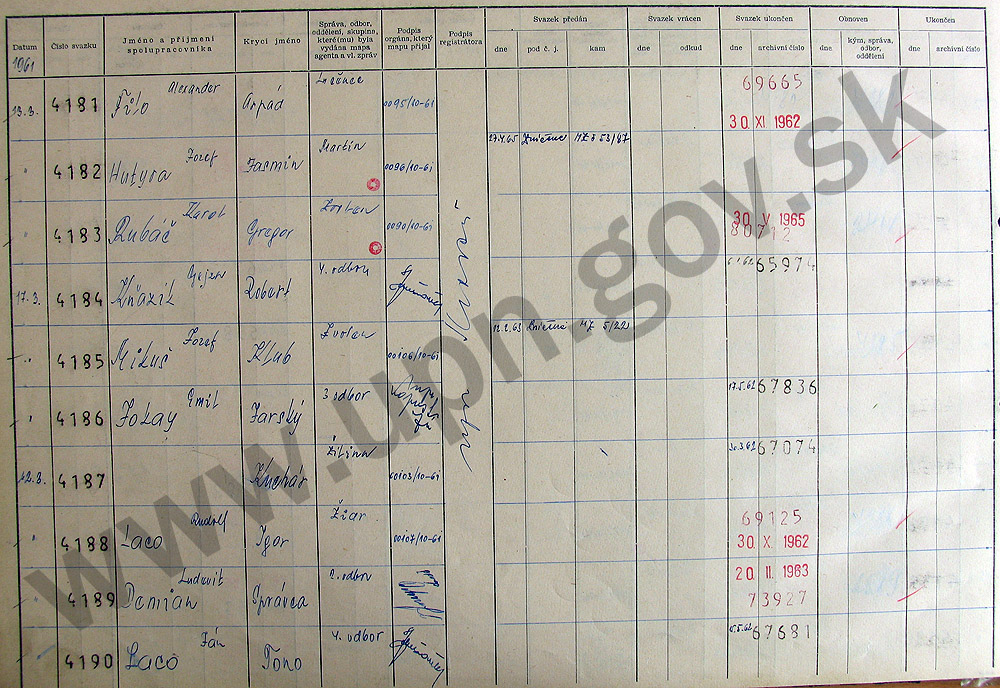 Datum
Číslo svazku
Jméno a příjmení spolupracovníka
Krycí jméno
Správa, odbor, oddělení, skupina, které(mu) byla vydána mapa agenta a vl. zpráv
Podpis orgána, který mapu přijal
Podpis registrátora
Svazek předán
dne
pod č. j.
kam
Svazek vrácen
dne
odkud
Svazek ukončen
dne
archivní číslo
Obnoven
dne
kým, správa, odbor, oddělení
Ukončen
dne
archivní číslo
1961
13.3. 4181 Alexander Filo Arpád Lučenec 0095/10-61 69665
30 XI 1962
" 4182 Jozef Hutyra Jasmin Martin 0096/10-61 27.4.65
" 4183 Karol Rubáč Gregor Zvolen 0090/10-61 30 V 1965
80712
17.3. 4184 Kňazík Robert 4. odboru 65974
" 4185 Jozef Mikuš Klub Zvolen 00106/10-61 12.2.63
" 4186 Emil Jarský 3 odbor 17.5.62 67836
4187 Kuchár Žilina 00103/10-61 67074
" 4188 Rudolf Laco Igor Žiar 00107/10-61 69125
30 X. 1962
" 4189 Ludovit Demian Správca 2. odbor 20 II. 1963
73927
4190 Ján Laco Tono 4. odbor 67681
www.upn.gov.sk